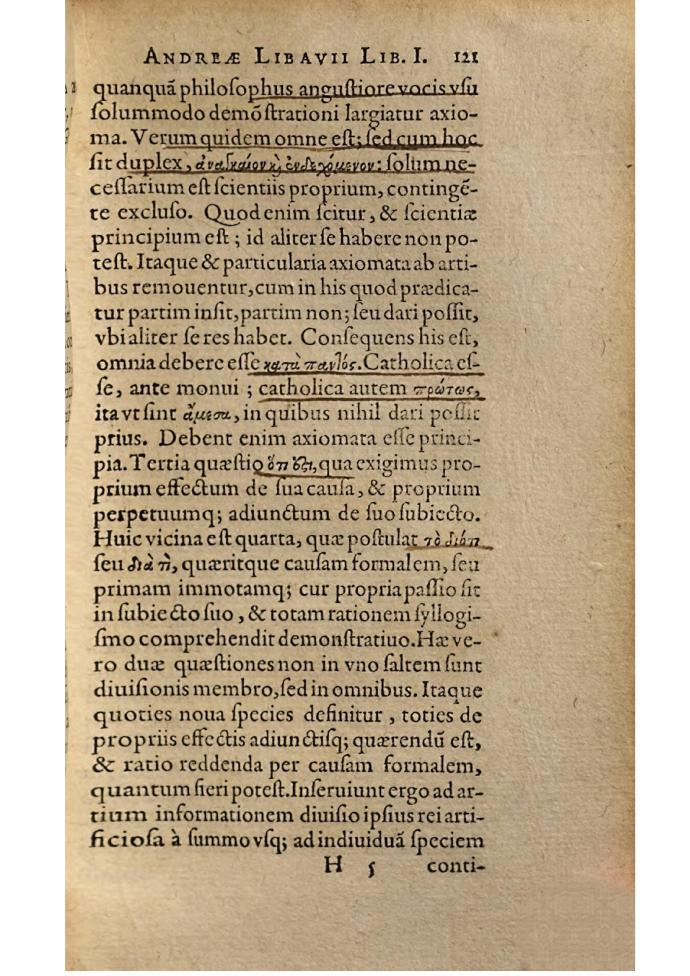 ANDREÆ LIBAVII LIB. I. 121
quanquã philoſophus anguſtiore vocis vſu
ſolummodo demõſtrationi largiatur axio-
ma. Verum quidem omne eſt; ſed cum hoc
ſit duplex, ἀναγκαῖον καὶ ἐνδεχόμενον: ſolum ne-
ceſſarium eſt ſcientiis proprium, contingẽ-
te excluſo. Quod enim ſcitur, & ſcientiæ
principium eſt; id aliter ſe habere non po-
teſt. Itaque & particularia axiomata ab arti-
bus remouentur, cum in his quod prædica-
tur partim inſit, partim non; ſeu dari poſſit,
vbi aliter ſe res habet. Conſequens his eſt,
omnia debere eſſe κατὰ παντός. Catholica eſ-
ſe, ante monui; catholica autem πρώτως,
ita vt ſint ἄμεσα, in quibus nihil dari poſſit
prius. Debent enim axiomata eſſe princi-
pia. Tertia quæſtio ὅτι ἐστι, qua exigimus pro-
prium effectum de ſua cauſa, & proprium
perpetuumq; adiunctum de ſuo ſubiecto.
Huic vicina eſt quarta, quæ poſtulat τὸ διότι
ſeu διὰ τί, quæritque cauſam formalem, ſeu
primam immotamq; cur propria paſſio ſit
in ſubiecto ſuo, & totam rationem ſyllogi-
ſmo comprehendit demonſtratiuo. Hæ ve-
ro duæ quæſtiones non in vno ſaltem ſunt
diuiſionis membro, ſed in omnibus. Itaque
quoties noua ſpecies definitur, toties de
propriis effectis adiunctiſq; quærendũ eſt,
& ratio reddenda per cauſam formalem,
quantum fieri poteſt. Inſeruiunt ergo ad ar-
tium informationem diuiſio ipſius rei arti-
ficioſa à ſummo vſq; ad indiuiduã ſpeciem
H 5 conti-